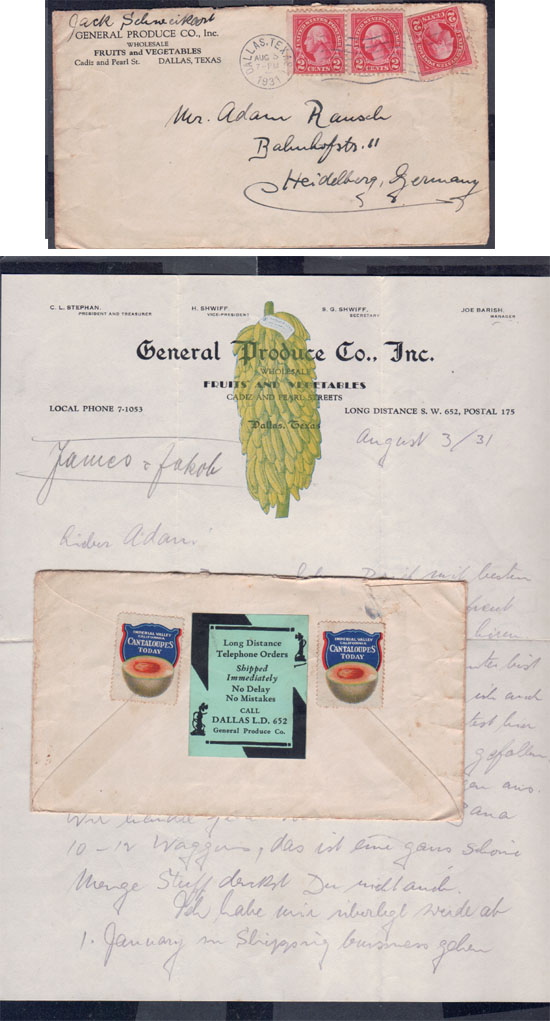 Jack Schweikart
GENERAL PRODUCE CO., Inc.
WHOLESALE
FRUITS and VEGETABLES
Cadiz and Pearl St. DALLAS, TEXAS
DALLAS, TEXAS
AUG 5
7-PM
1931
UNITED STATES POSTAGE
2 CENTS 2
UNITED STATES POSTAGE
2 CENTS 2
UNITED STATES POSTAGE
2 CENTS 2
Mr. Adam Rausch
Bahnhofstr. 11
Heidelberg, Germany
C. L. STEPHAN, H. SHWIFF, S. G. SHWIFF, JOE BARISH,
PRESIDENT AND TREASURER VICE-PRESIDENT SECRETARY MANAGER
General Produce Co., Inc.
WHOLESALE
FRUITS AND VEGETABLES
CADIZ AND PEARL STREETS
LOCAL PHONE 7-1053 LONG DISTANCE S. W. 652, POSTAL 175
Dallas, Texas
August 3/31
James & Jakob
Lieber Adam!
mit besten
ich auch
gefallen
aus.
IMPERIAL VALLEY
CALIFORNIA
CANTALOUPES
TODAY
Long Distance
Telephone Orders
Shipped
Immediately
No Delay
No Mistakes
CALL
DALLAS L.D. 652
General Produce Co.
IMPERIAL VALLEY
CALIFORNIA
CANTALOUPES
TODAY
Wir
10-12 Waggons, das ist eine ganz schöne
Menge Stuff denkst Du nicht auch.
Ich habe mir überlegt werde ab
1. January in Shipping business gehen